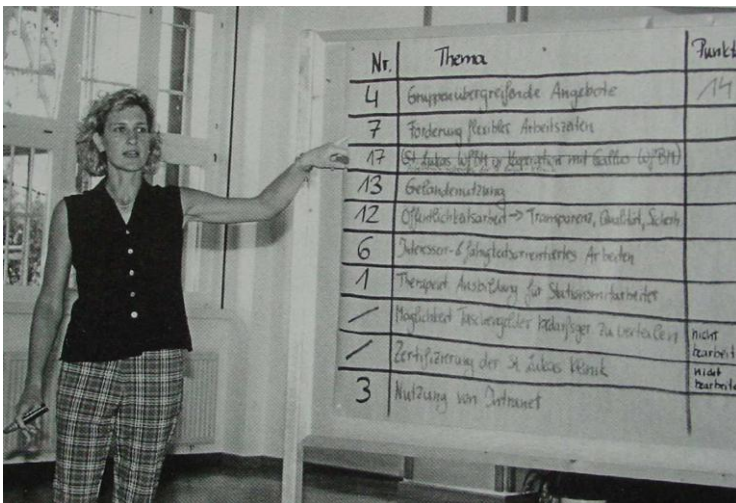 Nr. Thema Punkte
4 Gruppenübergreifende Angebote 14
7 Förderung flexibler Arbeitszeiten
17 (St. Lukas WfBM in Kooperation mit Gallus WfBM)
13 Geländenutzung
12 Öffentlichkeitsarbeit → Transparenz, Qualität,
6 Interessen- & fähigkeitsorientiertes Arbeiten
1 Therapeut. Ausbildung für Stationsmitarbeiter
/ Möglichkeit Taschengelder bedarfsger. zu verteilen nicht bearbeitet
/ Zertifizierung der St. Lukas Klinik nicht bearbeitet
3 Nutzung von Intranet